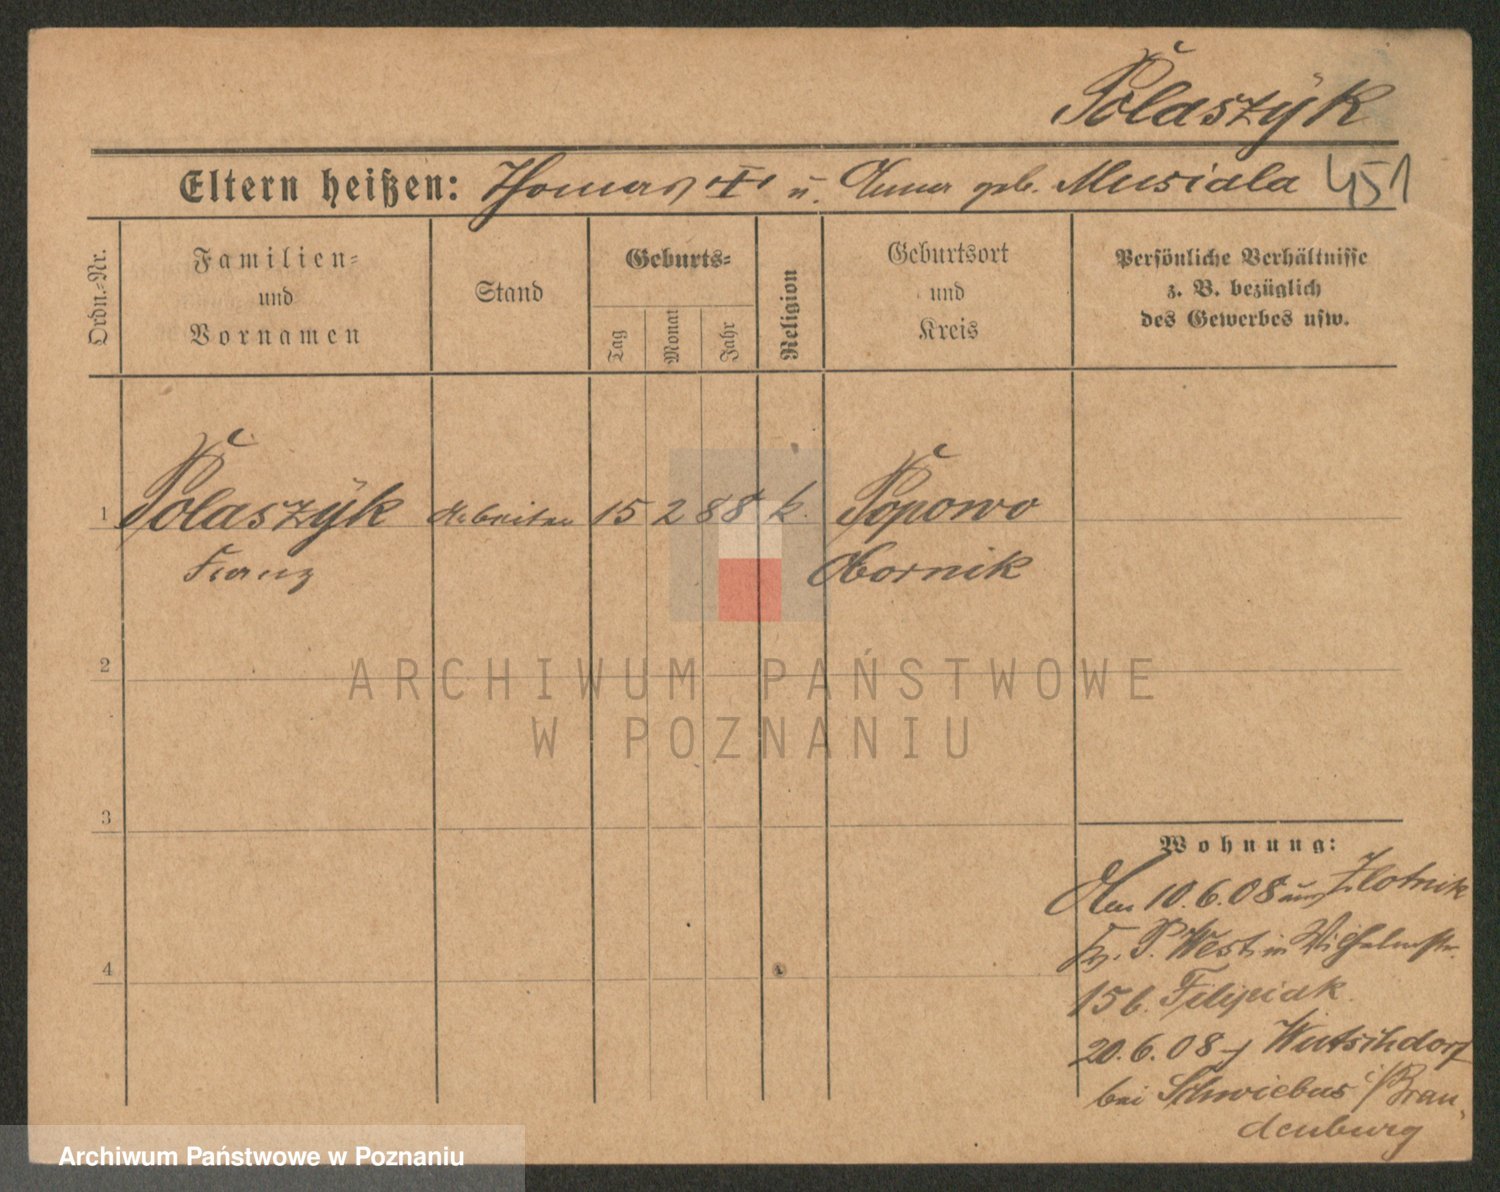 Polaszÿk
Eltern heißen: Thomas † u. Anna geb. Musiala 451
Ordn.-Nr.
Familien-
und
Vornamen
Stand
Geburts-
Tag
Monat
Jahr
Religion
Geburtsort
und
Kreis
Persönliche Verhältnisse
z. B. bezüglich
des Gewerbes usw.
1 Polaszÿk Arbeiter 15 2 88 k. Popowo
Franz Obornik
2
ARCHIWUM PAŃSTWOWE
W POZNANIU
3
Wohnung:
Am 10.6.08 aus Zlotnik
Kr. P. West in Wilhelmstr.
4
15 b. Filipiak
20.6.08 Wutschdorf
bei Schwiebus i/Bran-
denburg
Archiwum Państwowe w Poznaniu